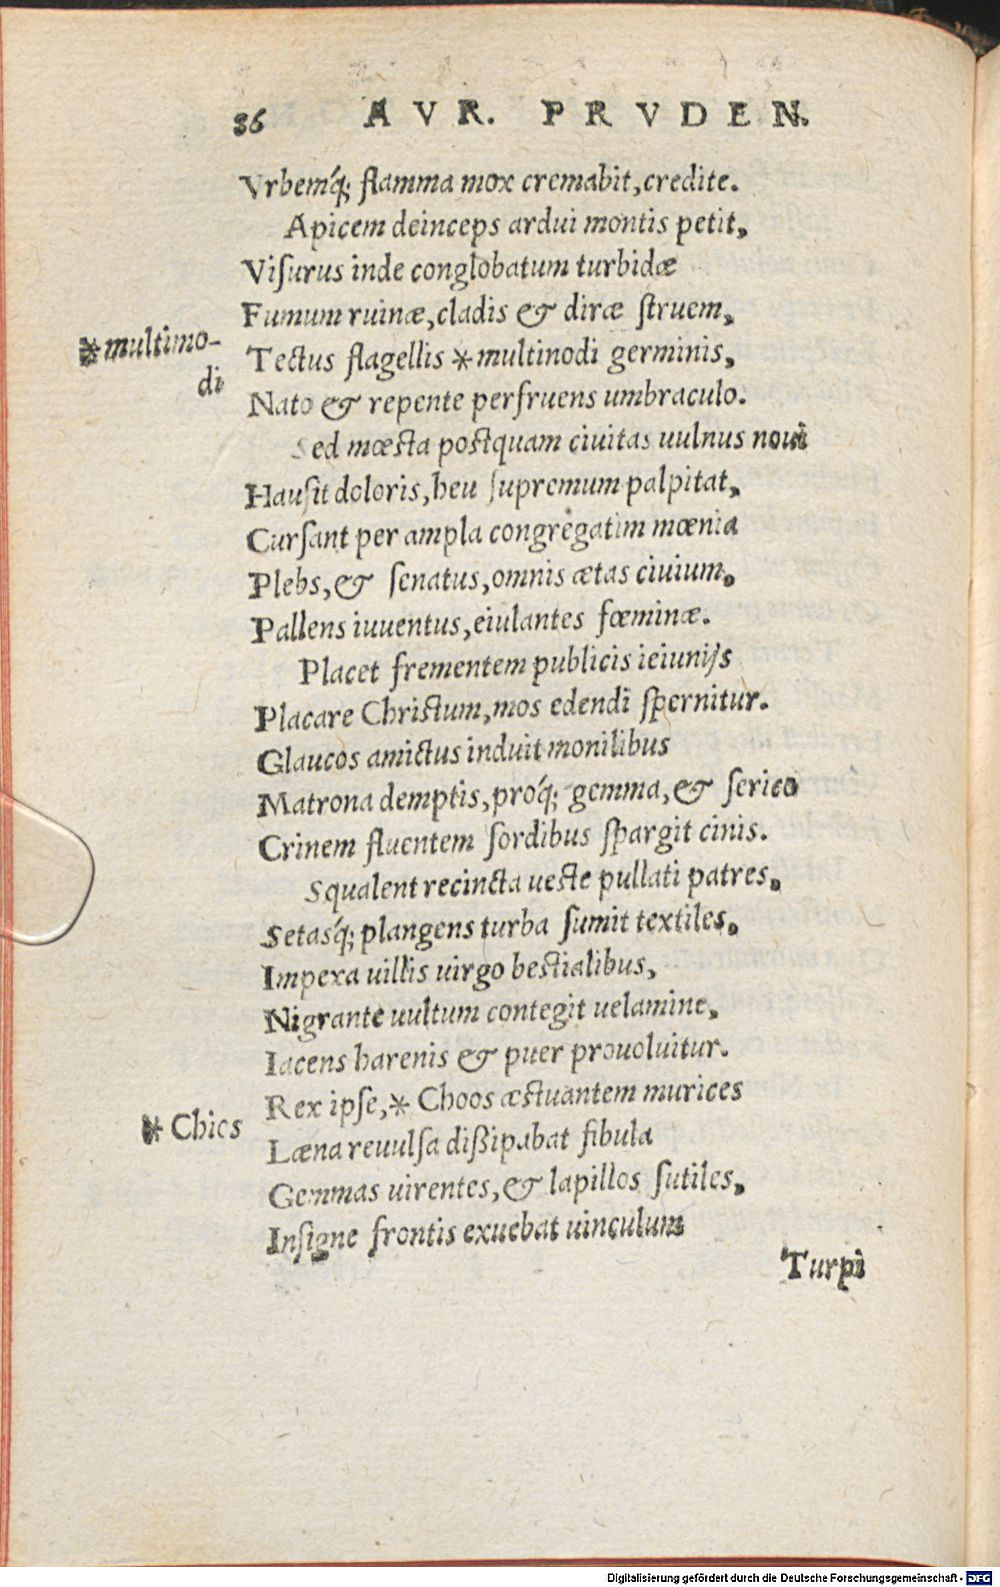 86 AVR. PRVDEN.
Vrbemq́; flamma mox cremabit, credite.
Apicem deinceps ardui montis petit,
Viſurus inde conglobatum turbidæ
Fumum ruinæ, cladis & diræ ſtruem,
*multimo-
di
Tectus flagellis *multinodi germinis,
Nato & repente perfruens umbraculo.
Sed mœſta poſtquam ciuitas uulnus noui
Hauſit doloris, heu ſupremum palpitat,
Curſant per ampla congregatim mœnia
Plebs, & ſenatus, omnis ætas ciuium,
Pallens iuuentus, eiulantes fœminæ.
Placet frementem publicis ieiunijs
Placare Chriſtum, mos edendi ſpernitur.
Glaucos amictus induit monilibus
Matrona demptis, proq́; gemma, & ſerico
Crinem fluentem ſordibus ſpargit cinis.
Squalent recincta ueſte pullati patres,
Setasq́; plangens turba ſumit textiles,
Impexa uillis uirgo beſtialibus,
Nigrante uultum contegit uelamine,
Iacens harenis & puer prouoluitur.
Rex ipſe, * Choos æſtuantem murices
* Chies
Læna reuulſa dißipabat fibula
Gemmas uirentes, & lapillos ſutiles,
Inſigne frontis exuebat uinculum
Turpi
Digitalisierung gefördert durch die Deutsche Forschungsgemeinschaft - DFG